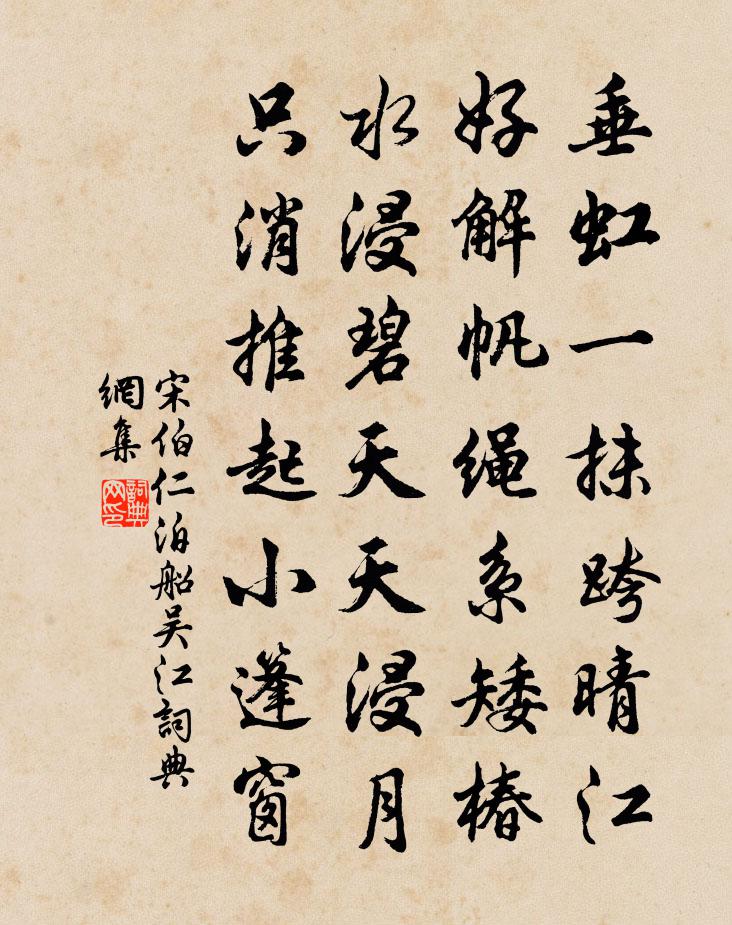 垂虹一抹跨晴江
好解帆绳系矮椿
水浸碧天天浸月
只消推起小篷窗
宋伯仁泊船吴江詞典
網集
詞典
网印